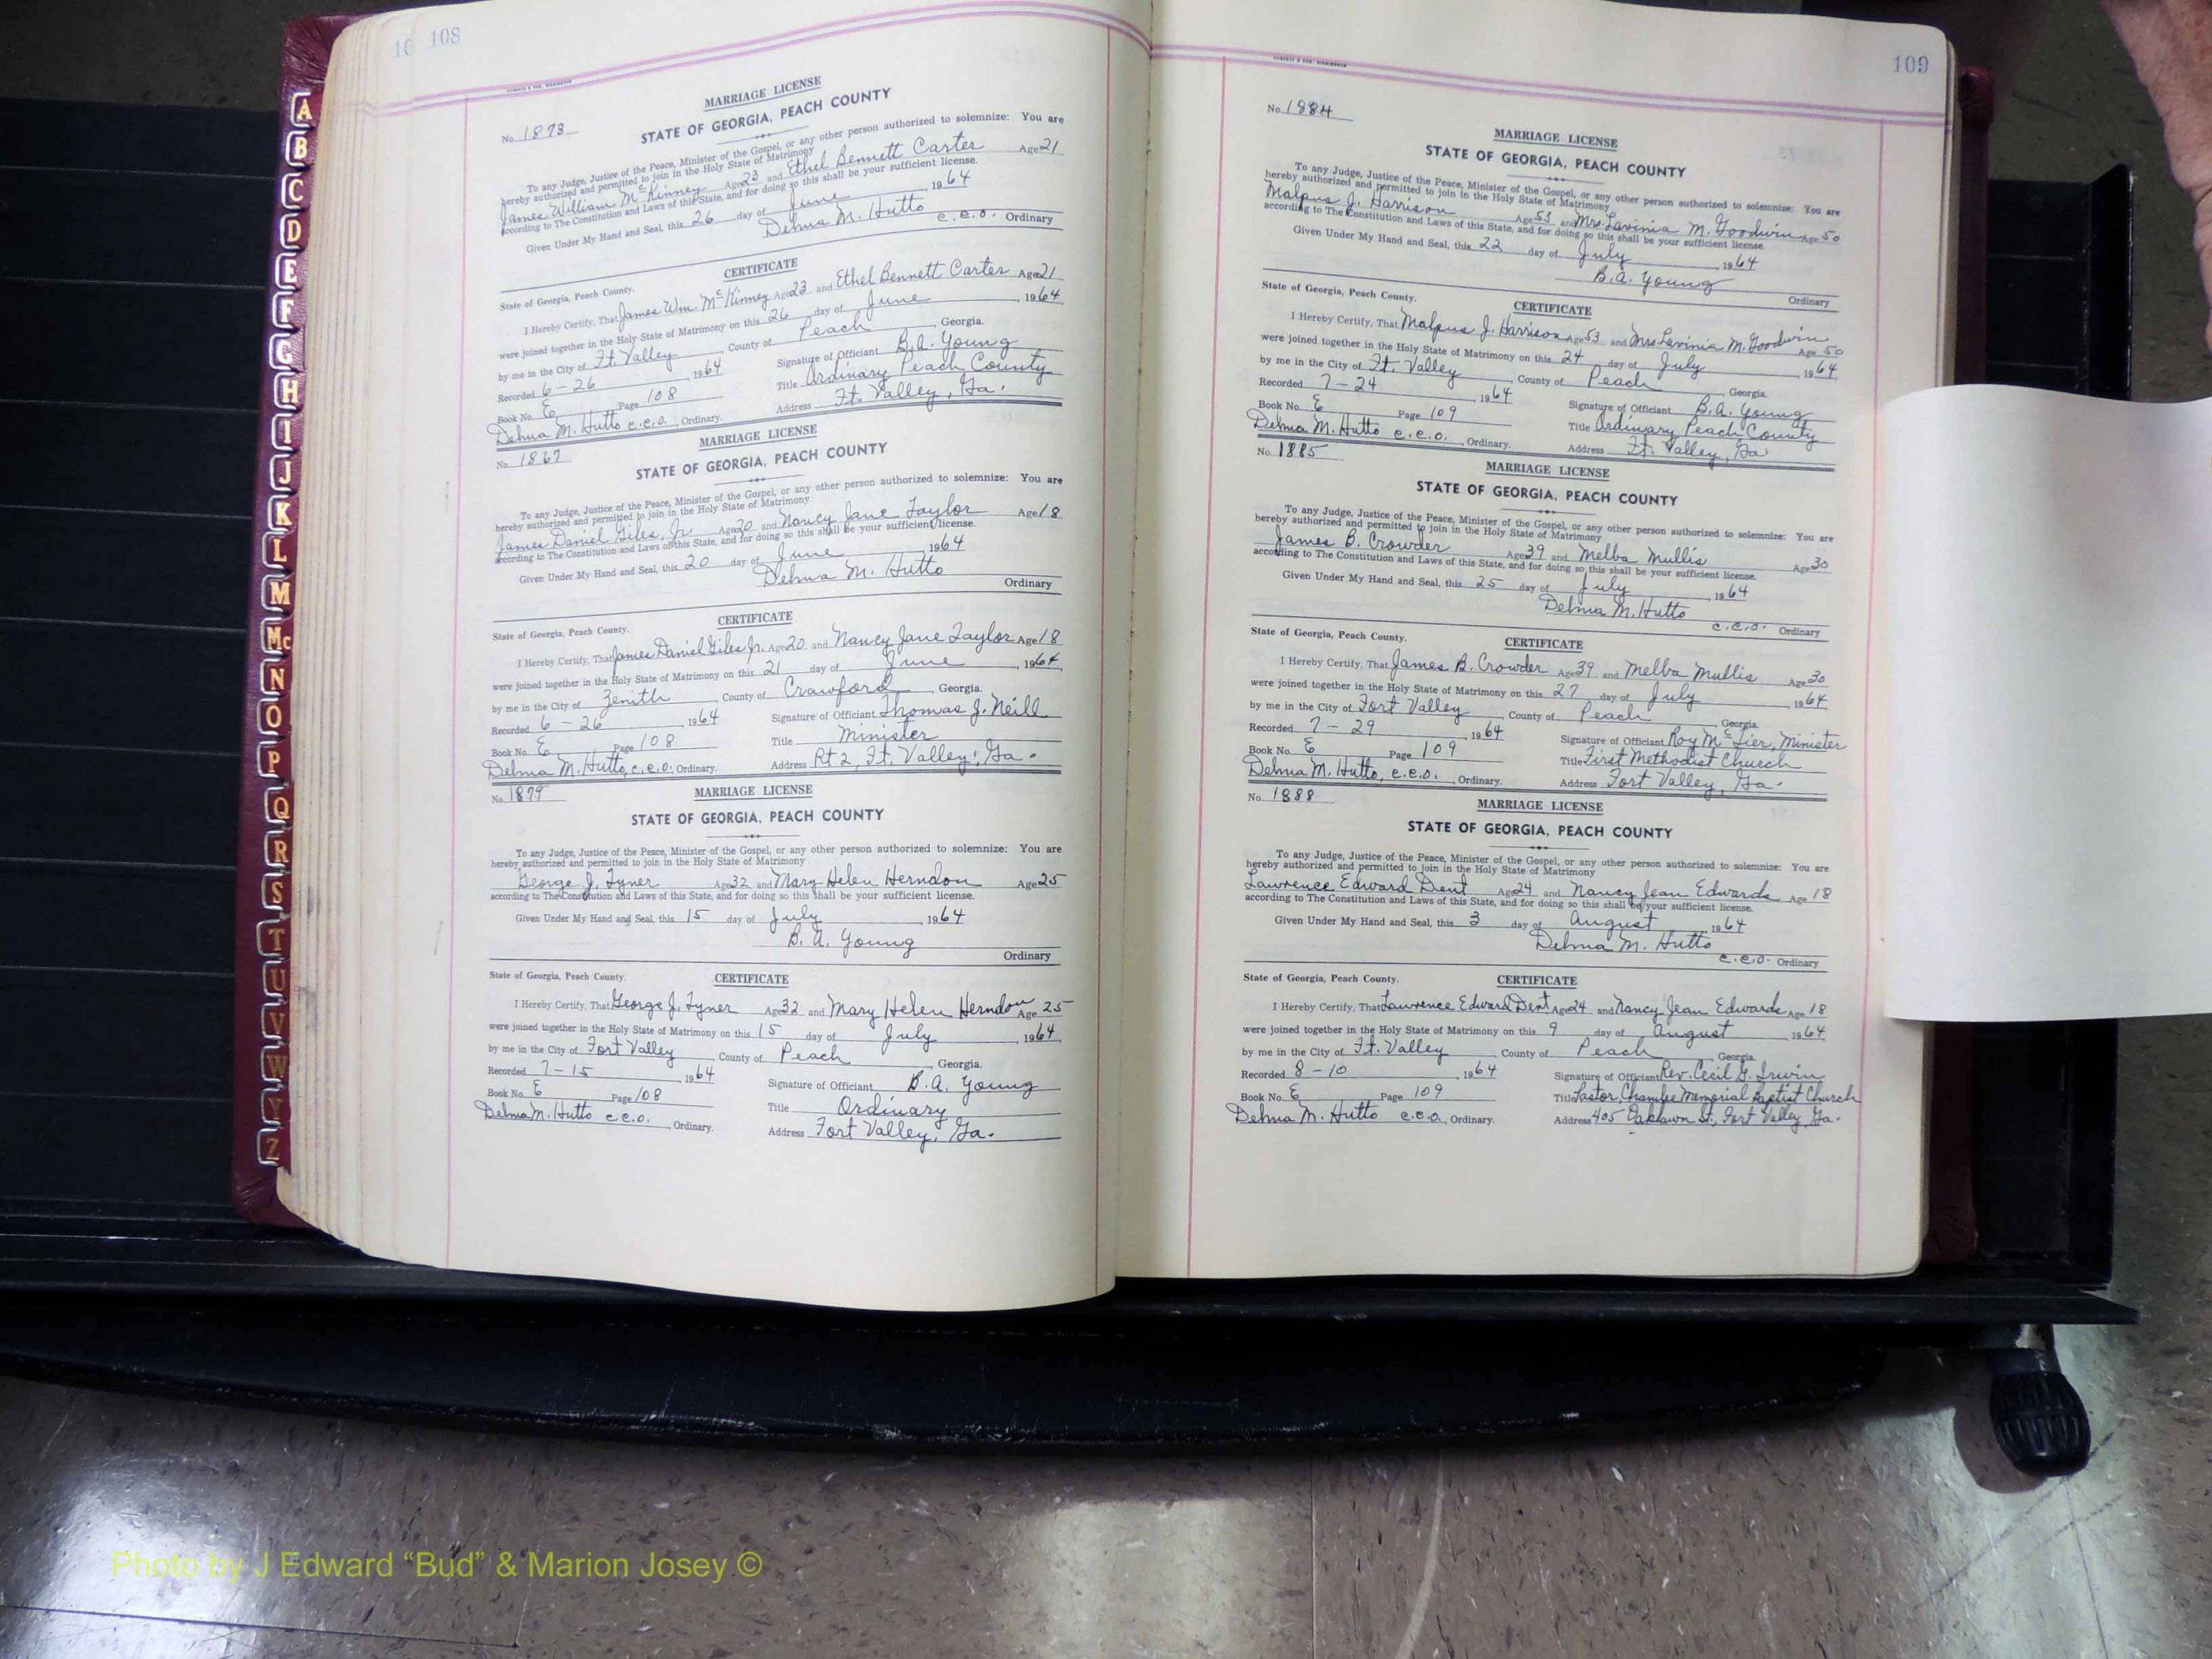 10 108
MARRIAGE LICENSE
No. 1873
STATE OF GEORGIA, PEACH COUNTY
To any Judge, Justice of the Peace, Minister of the Gospel, or any other person authorized to solemnize: You are
hereby authorized and permitted to join in the Holy State of Matrimony
James William McKinney Age 23 and Ethel Bennett Carter Age 21
according to The Constitution and Laws of this State, and for doing so this shall be your sufficient license.
Given Under My Hand and Seal, this 26 day of June 1964
Delma M. Hutto c.c.o. Ordinary
CERTIFICATE
State of Georgia, Peach County.
I Hereby Certify, That James Wm. McKinney Age 23 and Ethel Bennett Carter Age 21
were joined together in the Holy State of Matrimony on this 26 day of June, 1964.
by me in the City of Ft. Valley County of Peach, Georgia.
Recorded 6-26, 1964 Signature of Officiant B.A. Young
Book No. E Page 108 Title Ordinary Peach County
Delma M. Hutto c.c.o., Ordinary. Address Ft. Valley, Ga.
MARRIAGE LICENSE
No. 1867
STATE OF GEORGIA, PEACH COUNTY
To any Judge, Justice of the Peace, Minister of the Gospel, or any other person authorized to solemnize: You are
hereby authorized and permitted to join in the Holy State of Matrimony
James Daniel Giles, Jr. Age 20 and Nancy Jane Taylor Age 18
according to The Constitution and Laws of this State, and for doing so this shall be your sufficient license.
Given Under My Hand and Seal, this 20 day of June 1964
Delma M. Hutto
Ordinary
CERTIFICATE
State of Georgia, Peach County.
I Hereby Certify, That James Daniel Giles Jr. Age 20 and Nancy Jane Taylor Age 18
were joined together in the Holy State of Matrimony on this 21 day of June, 1964.
by me in the City of Zenith County of Crawford, Georgia.
Recorded 6-26, 1964 Signature of Officiant Thomas J. Neill
Book No. E Page 108 Title Minister
Delma M. Hutto, c.c.o., Ordinary. Address Rt 2, Ft. Valley, Ga.
No. 1879 MARRIAGE LICENSE
STATE OF GEORGIA, PEACH COUNTY
To any Judge, Justice of the Peace, Minister of the Gospel, or any other person authorized to solemnize: You are
hereby authorized and permitted to join in the Holy State of Matrimony
George J. Tyner Age 32 and Mary Helen Herndon Age 25
according to The Constitution and Laws of this State, and for doing so this shall be your sufficient license.
Given Under My Hand and Seal, this 15 day of July, 1964
B. A. Young
Ordinary
State of Georgia, Peach County. CERTIFICATE
I Hereby Certify, That George J. Tyner Age 32 and Mary Helen Herndon Age 25
were joined together in the Holy State of Matrimony on this 15 day of July, 1964.
by me in the City of Fort Valley, County of Peach, Georgia.
Recorded 7-15, 1964
Book No. E Page 108 Signature of Officiant B.A. Young
Delma M. Hutto c.c.o., Ordinary. Title Ordinary
Address Fort Valley, Ga.
109
No. 1884
MARRIAGE LICENSE
STATE OF GEORGIA, PEACH COUNTY
To any Judge, Justice of the Peace, Minister of the Gospel, or any other person authorized to solemnize: You are
hereby authorized and permitted to join in the Holy State of Matrimony
Malpus J. Harrison Age 53 and Mrs. Lavinia M. Goodwin Age 50
according to The Constitution and Laws of this State, and for doing so this shall be your sufficient license.
Given Under My Hand and Seal, this 22 day of July, 1964
B.A. Young
Ordinary
State of Georgia, Peach County. CERTIFICATE
I Hereby Certify, That Malpus J. Harrison Age 53 and Mrs. Lavinia M. Goodwin Age 50
were joined together in the Holy State of Matrimony on this 24 day of July 1964.
by me in the City of Ft. Valley, County of Peach, Georgia.
Recorded 7-24, 1964
Book No. E Page 109 Signature of Officiant B.A. Young
Delma M. Hutto c.c.o., Ordinary. Title Ordinary Peach County
Address Ft. Valley, Ga
No. 1885
MARRIAGE LICENSE
STATE OF GEORGIA, PEACH COUNTY
To any Judge, Justice of the Peace, Minister of the Gospel, or any other person authorized to solemnize: You are
hereby authorized and permitted to join in the Holy State of Matrimony
James B. Crowder Age 39 and Melba Mullis Age 30
according to The Constitution and Laws of this State, and for doing so this shall be your sufficient license.
Given Under My Hand and Seal, this 25 day of July, 1964
Delma M. Hutto
c.c.o. Ordinary
State of Georgia, Peach County. CERTIFICATE
I Hereby Certify, That James B. Crowder Age 39 and Melba Mullis Age 30
were joined together in the Holy State of Matrimony on this 27 day of July, 1964
by me in the City of Fort Valley, County of Peach, Georgia.
Recorded 7-29, 1964
Book No. E Page 109 Signature of Officiant Roy McTier, Minister
Delma M. Hutto, c.c.o., Ordinary. Title First Methodist Church
Address Fort Valley, Ga.
No. 1888
MARRIAGE LICENSE
STATE OF GEORGIA, PEACH COUNTY
To any Judge, Justice of the Peace, Minister of the Gospel, or any other person authorized to solemnize: You are
hereby authorized and permitted to join in the Holy State of Matrimony
Lawrence Edward Dent Age 24 and Nancy Jean Edwards Age 18
according to The Constitution and Laws of this State, and for doing so this shall be your sufficient license.
Given Under My Hand and Seal, this 3 day of August, 1964
Delma M. Hutto
c.c.o. Ordinary
State of Georgia, Peach County. CERTIFICATE
I Hereby Certify, That Lawrence Edward Dent Age 24 and Nancy Jean Edwards Age 18
were joined together in the Holy State of Matrimony on this 9 day of August, 1964
by me in the City of Ft. Valley, County of Peach, Georgia.
Recorded 8-10, 1964 Signature of Officiant Rev. Cecil G. Irwin
Book No. E Page 109 Title Pastor, Chamlee Memorial Baptist Church
Delma M. Hutto c.c.o., Ordinary. Address 405 Oaklawn St., Fort Valley, Ga.
A
B
C
D
E
F
G
H
I
J
K
L
M
Mc
N
O
P
Q
R
S
T
U
V
W
Y
Z
Photo by J Edward “Bud” & Marion Josey ©